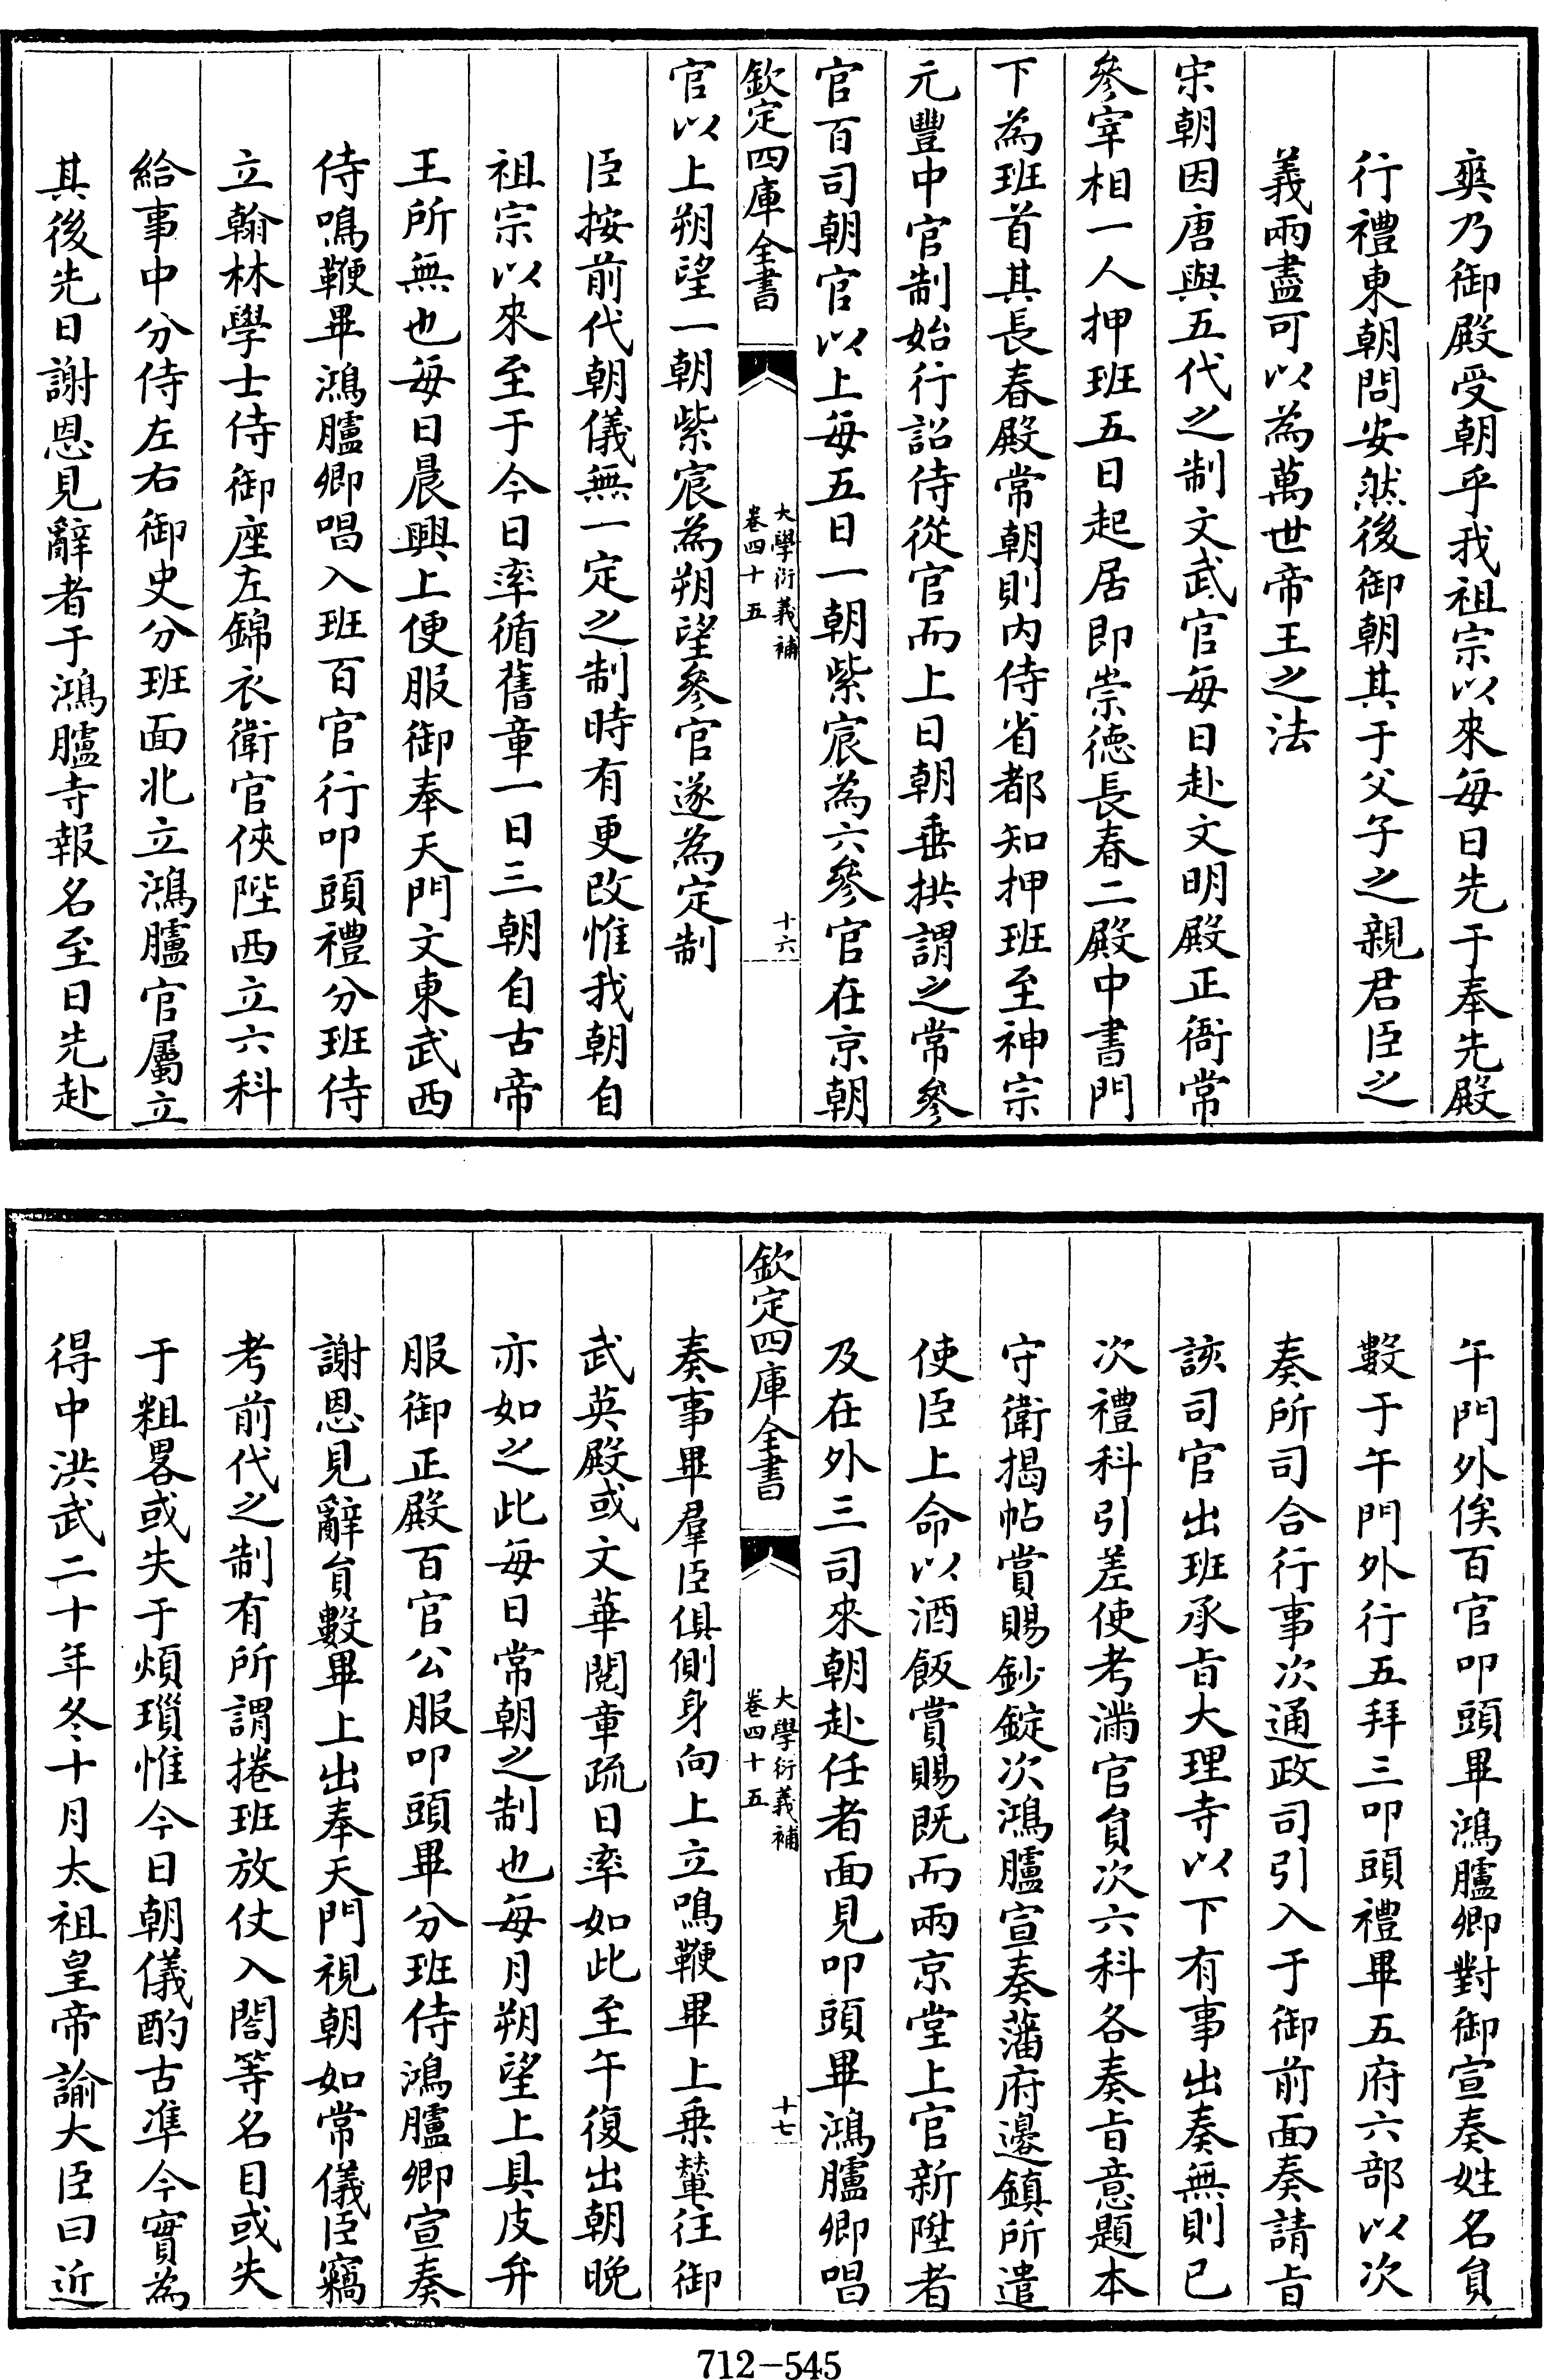 奭乃御殿受朝乎我祖宗以來每日先于奉先殿
行禮東朝問安然後御朝其于父子之親君臣之
義兩盡可以為萬世帝王之法
宋朝因唐與五代之制文武官每日赴文明殿正衙常
參宰相一人押班五日起居即崇德長春二殿中書門
下為班首其長春殿常朝則內侍省都知押班至神宗
元豐中官制始行詔侍從官而上日朝垂拱謂之常參
官百司朝官以上每五日一朝紫宸為六參官在京朝
欽定四庫全書
大學衍義補
卷四十五
十六
官以上朔望一朝紫宸為朔望參官遂為定制
臣按前代朝儀無一定之制時有更改惟我朝自
祖宗以來至于今日率循舊章一日三朝自古帝
王所無也每日晨興上便服御奉天門文東武西
侍鳴鞭畢鴻臚卿唱入班百官行叩頭禮分班侍
立翰林學士侍御座左錦衣衛官俠陛西立六科
給事中分侍左右御史分班面北立鴻臚官屬立
其後先日謝恩見辭者于鴻臚寺報名至日先赴
午門外俟百官叩頭畢鴻臚卿對御宣奏姓名員
數于午門外行五拜三叩頭禮畢五府六部以次
奏所司合行事次通政司引入于御前面奏請旨
該司官出班承旨大理寺以下有事出奏無則已
次禮科引差使考滿官員次六科各奏旨意題本
守衛揭帖賞賜鈔錠次鴻臚宣奏藩府邊鎮所遣
使臣上命以酒飯賞賜既而兩京堂上官新陞者
及在外三司來朝赴任者面見叩頭畢鴻臚卿唱
欽定四庫全書
大學衍義補
卷四十五
十七
奏事畢羣臣俱側身向上立鳴鞭畢上乗輦往御
武英殿或文華閱章疏日率如此至午復出朝晚
亦如之此每日常朝之制也每月朔望上具皮弁
服御正殿百官公服叩頭畢分班侍鴻臚卿宣奏
謝恩見辭員數畢上出奉天門視朝如常儀臣竊
考前代之制有所謂捲班放仗入閤等名目或失
于粗畧或失于煩瑣惟今日朝儀酌古凖今實為
得中洪武二十年冬十月太祖皇帝諭大臣曰近
712-545